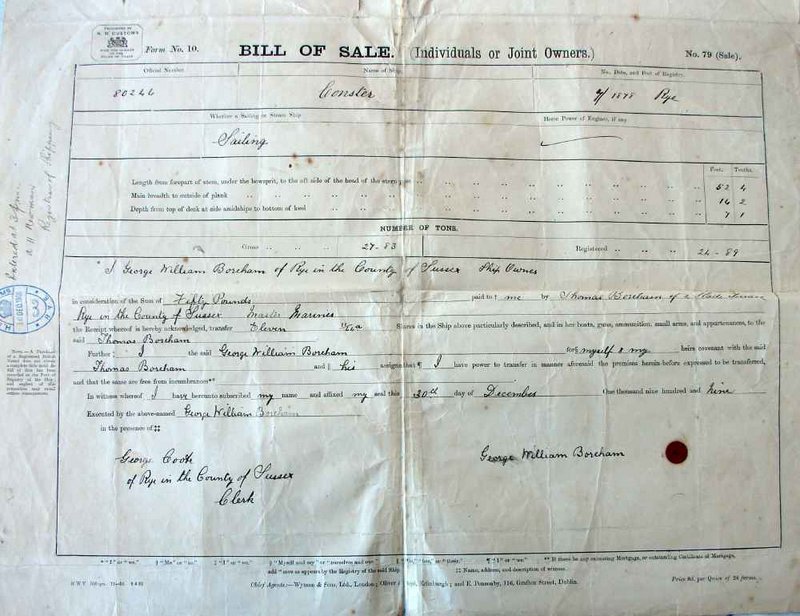 H.M CUSTOMS
Form No. 10.
BILL OF SALE. (Individuals or Joint Owners.)
No. 79 (Sale).
Official Number
Name of Ship.
No., Date, and Port of Registry.
80246
Conster
1878 Rye
Whether a Sailing or Steam Ship
Horse Power of Engines, if any
Sailing
Feet. Tenths.
Length from forepart of stem, under the bowsprit, to the aft side of the head of the stern post 52 4
Main breadth to outside of plank 16 2
Depth from top of deck at side amidships to bottom of keel 7 1
NUMBER OF TONS.
Gross 27-83
Registered 24-89
* I George William Boreham of Rye in the County of Sussex Ship Owner
in consideration of the Sum of Fifty Pounds paid to me by Thomas Boreham of
Rye in the County of Sussex Master Mariner
the Receipt whereof is hereby acknowledged, transfer Eleven Shares in the Ship above particularly described, and in her boats, guns, ammunition, small arms, and appurtenances, to the
said Thomas Boreham
Further, I the said George William Boreham for myself & my heirs covenant with the said
Thomas Boreham and his assigns that I have power to transfer in manner aforesaid the premises herein-before expressed to be transferred,
and that the same are free from incumbrances**
In witness whereof I have hereunto subscribed my name and affixed my seal this 30th day of December One thousand nine hundred and Nine
Executed by the above-named George William Boreham
in the presence of‡‡
George Cook
of Rye in the County of Sussex
Clerk
George William Boreham
Entered at
Registrar of Shipping
* "I" or "we." † "Me" or "us." ‡ "I" or "we." § "Myself and my" or "ourselves and our." "his," "their." ¶ "I" or "we." ** If there be any subsisting Mortgage, or outstanding Certificate of Mortgage,
add "save as appears by the Registry of the said Ship."
‡‡ Name, address, and description of witness.
Chief Agents:—Wyman & Sons, Ltd., London; Oliver & Boyd, Edinburgh; and E. Ponsonby, 116, Grafton Street, Dublin.
Price 8d. per Quire of 24 forms.